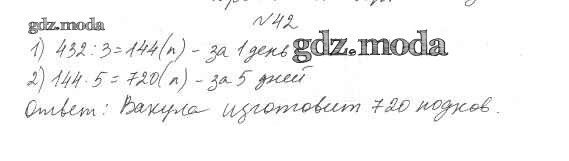 №42
gdz.moda
1) 432:3=144(п) - за 1 день gdz.moda
2) 144·5=720(п) - за 5 дней
Ответ: Вакула изготовит 720 подков.